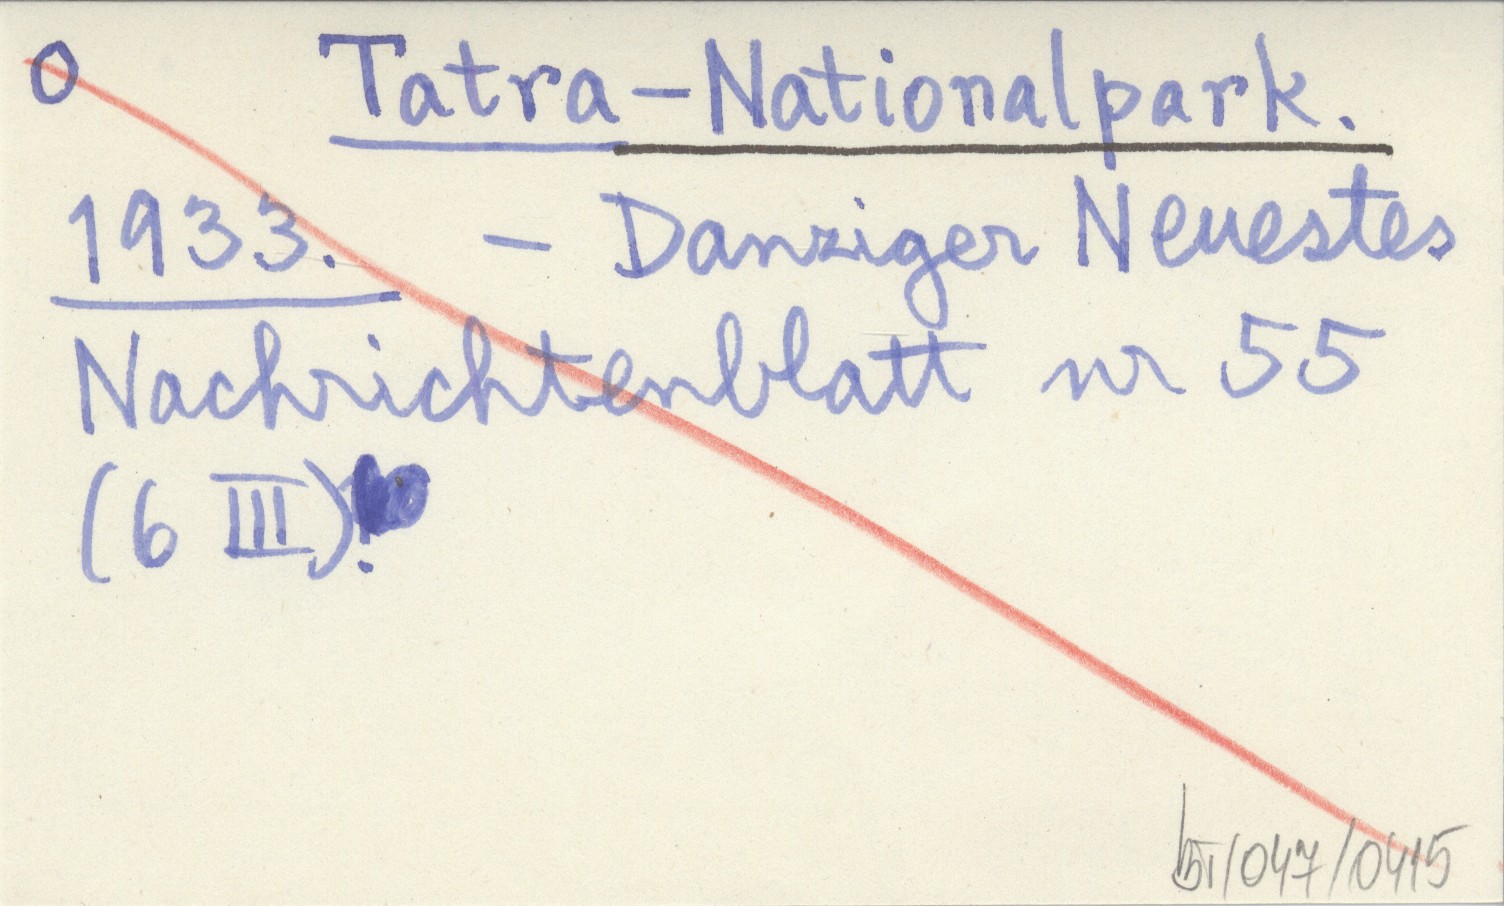 O Tatra-Nationalpark.
1933. – Danziger Neuestes
Nachrichtenblatt nr 55
(6 III).
bT/047/0415